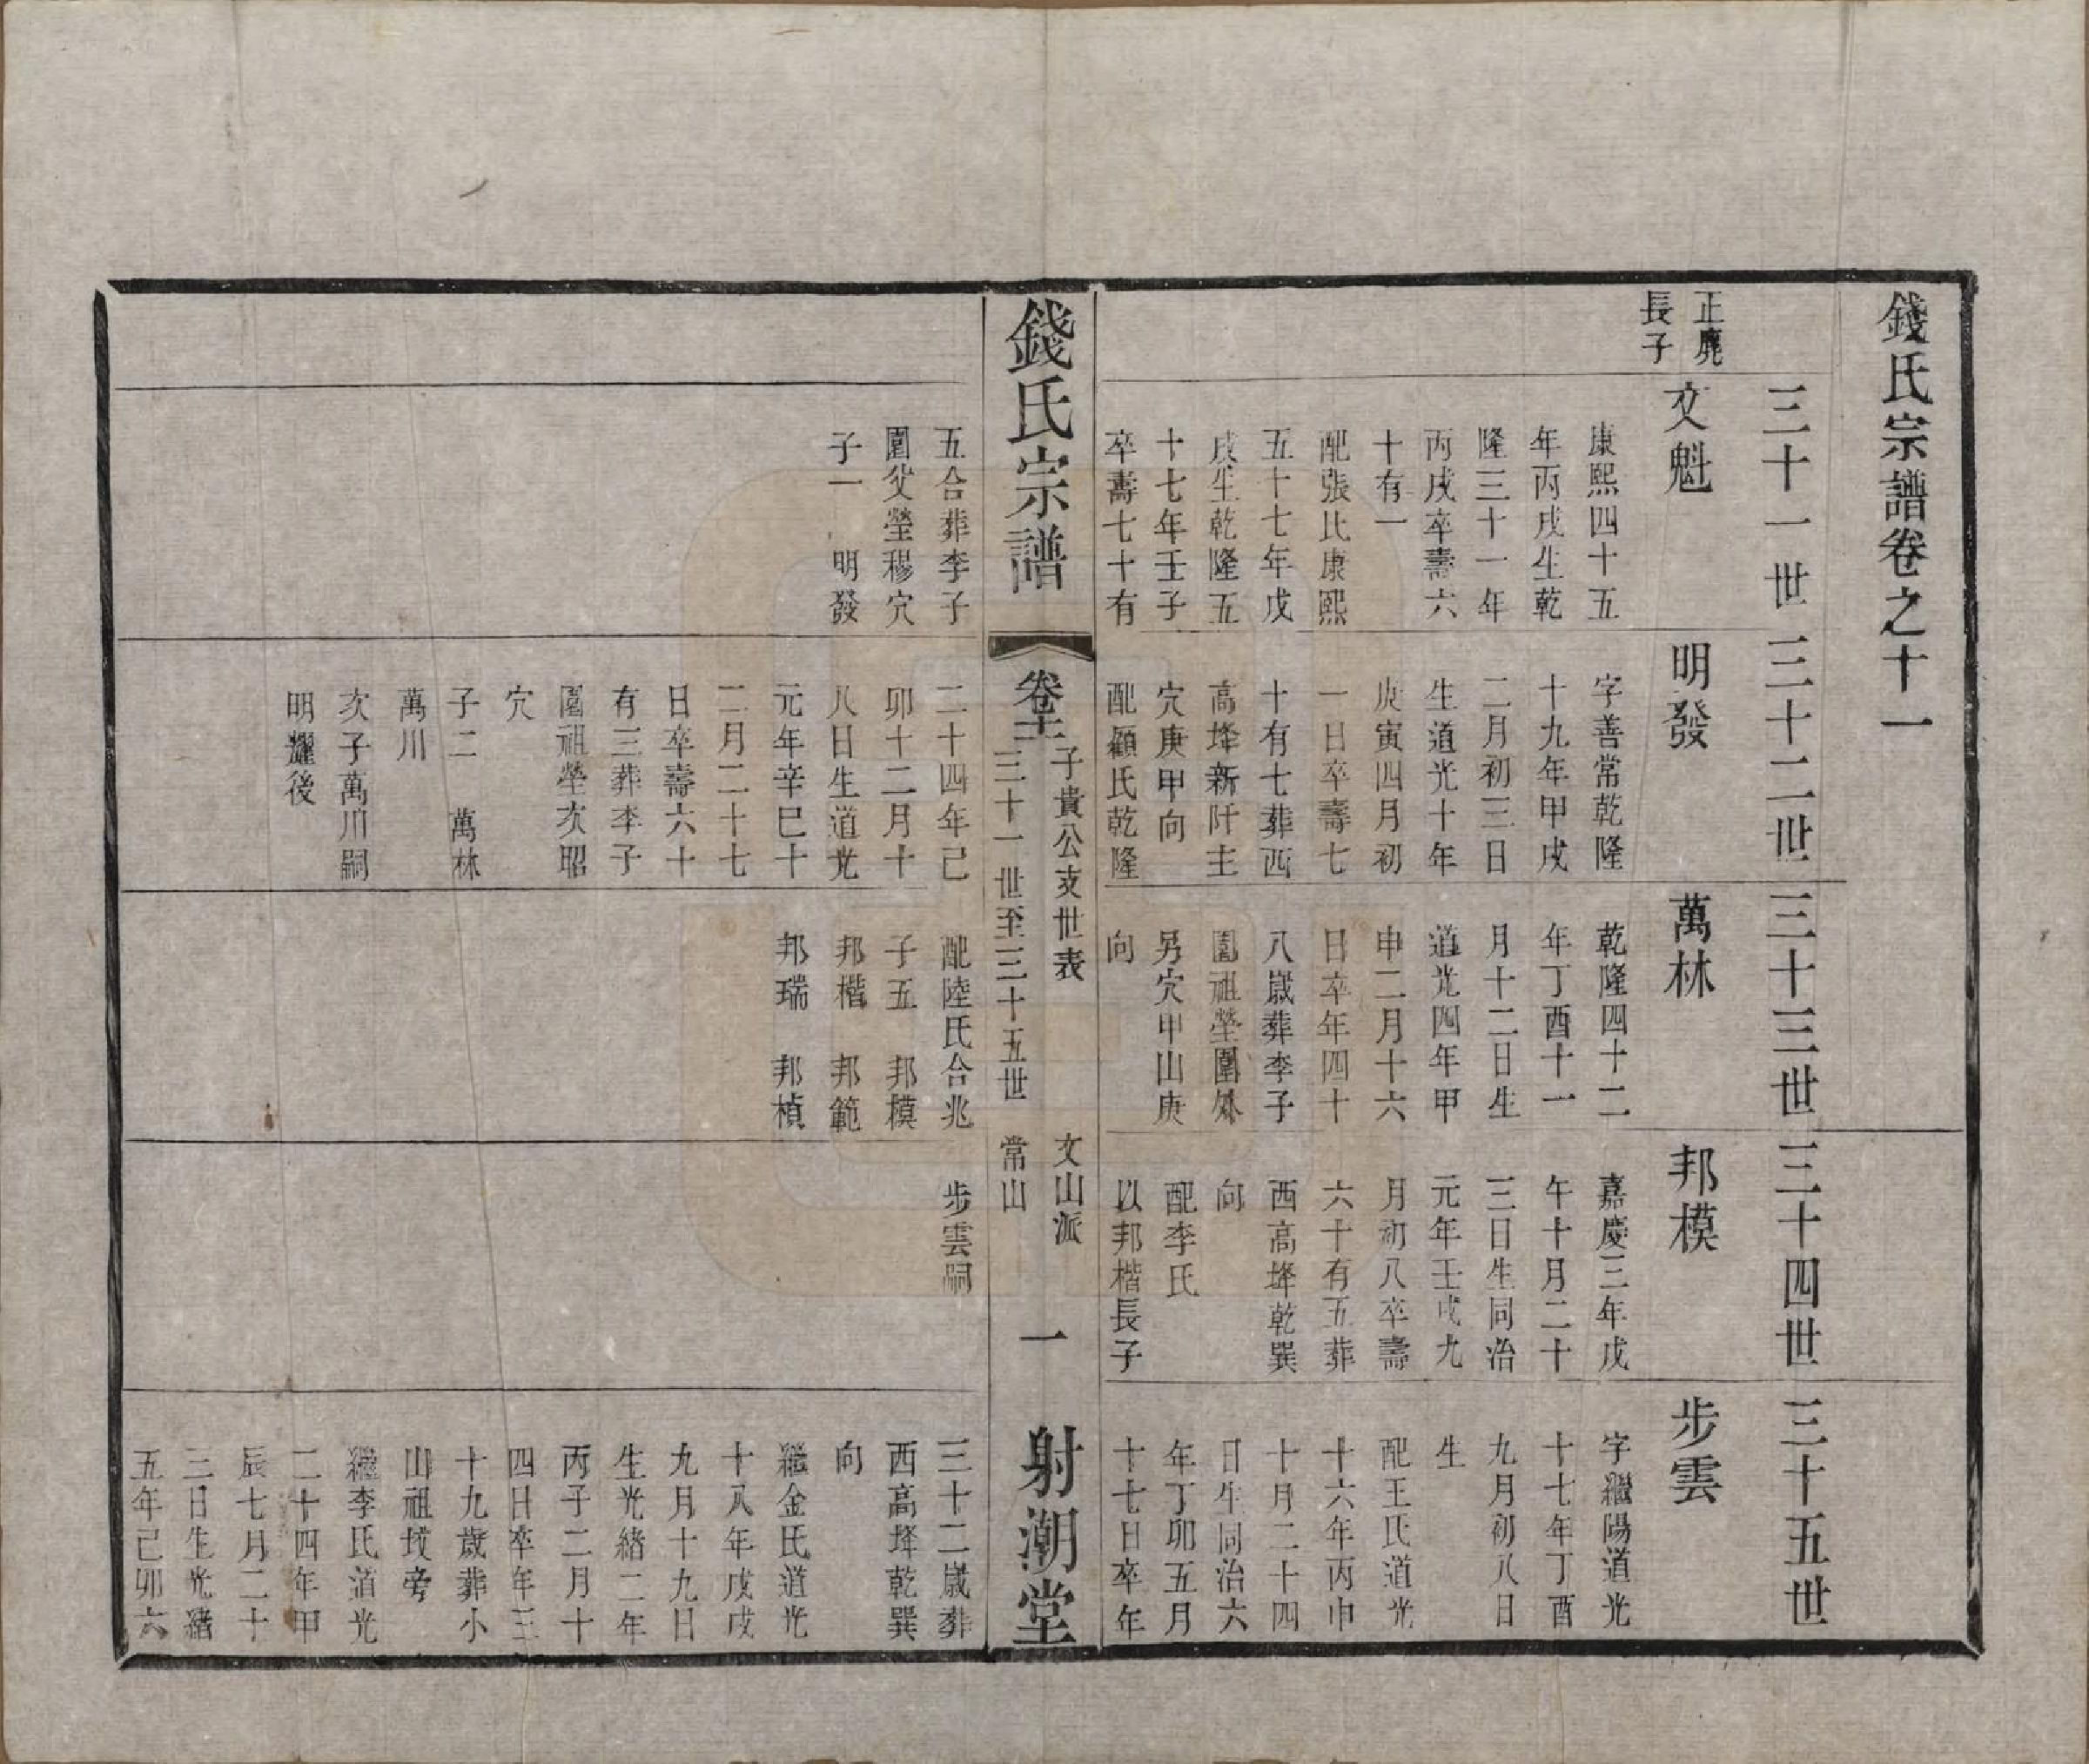 錢氏宗譜卷之十一
三十一世
三十二世
三十三世
三十四世
三十五世
正麂
長子
文魁
康熙四十五
年丙戌生乾
隆三十一年
丙戌卒壽六
十有一
配張氏康熙
五十七年戊
戌生乾隆五
十七年壬子
卒壽七十有
五合葬李子
圍父塋穆穴
子一 明發
明發
字善常乾隆
十九年甲戌
二月初三日
生道光十年
庚寅四月初
一日卒壽七
十有七葬西
高埄新阡主
穴庚甲向
配顧氏乾隆
二十四年己
卯十二月十
八日生道光
元年辛巳十
二月二十七
日卒壽六十
有三葬李子
圍祖塋次昭
穴
子二 萬林
萬川
次子萬川嗣
明耀後
萬林
乾隆四十二
年丁酉十一
月十二日生
道光四年甲
申二月十六
日卒年四十
八歲葬李子
圍祖塋圍外
另穴甲山庚
向
配陸氏合兆
子五 邦模
邦楷 邦範
邦瑞 邦楨
邦模
嘉慶三年戊
午十月二十
三日生同治
元年壬戌九
月初八卒壽
六十有五葬
西高埄乾巽
向
配李氏
以邦楷長子
步雲嗣
步雲
字繼陽道光
十七年丁酉
九月初八日
生
配王氏道光
十六年丙申
十月二十四
日生同治六
年丁卯五月
十七日卒年
三十二歲葬
西高埄乾巽
向
繼金氏道光
十八年戊戌
九月十九日
生光緒二年
丙子二月十
四日卒年三
十九歲葬小
山祖坟旁
繼李氏道光
二十四年甲
辰七月二十
三日生光緒
五年己卯六
錢氏宗譜
卷十一
子貴公支世表
三十一世至三十五世
文山派
常山
一
射潮堂